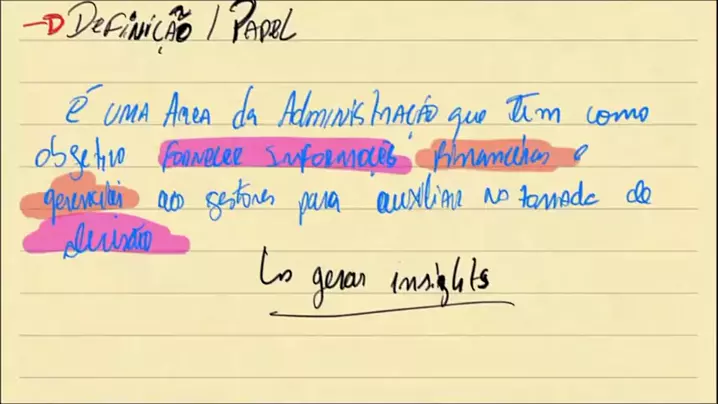 → DEFINIÇÃO / PAPEL
É UMA ÁREA da ADMINISTRAÇÃO que TEM como
objetivo FORNECER INFORMAÇÕES financeiras e
gerenciais aos gestores para auxiliar na tomada de
decisão
↳ gerar insights